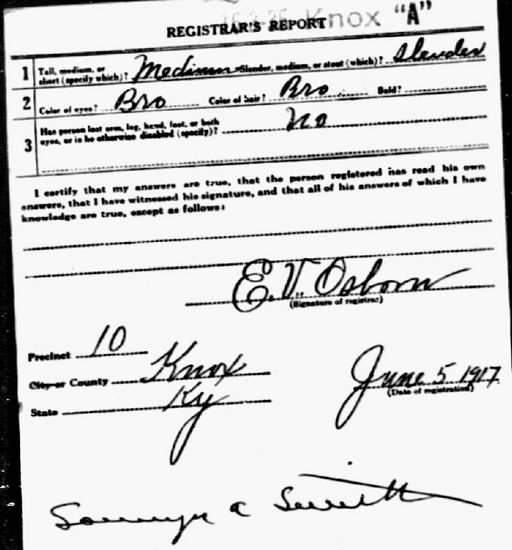 Knox "A"
REGISTRAR'S REPORT
1 Tall, medium, or short (specify which)? Medium Slender, medium, or stout (which)? Slender
2 Color of eyes? Bro Color of hair? Bro Bald?
3 Has person lost arm, leg, hand, foot, or both eyes, or is he otherwise disabled (specify)? No
I certify that my answers are true, that the person registered has read his own
answers, that I have witnessed his signature, and that all of his answers of which I have
knowledge are true, except as follows:
E. V. Osborn
(Signature of registrar)
Precinct 10
City or County Knox
State Ky
June 5 1917
(Date of registration)
Smith